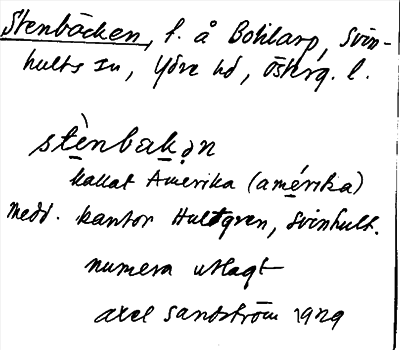 Stenbäcken, t. å Bohlarp, Svin-
hults sn, Ydre hd, Österg. l.
stènbakən
kallat Amerika (amérika)
Medd. kantor Hultgren, Svinhult.
numera utlagt
Axel Sandström 1929